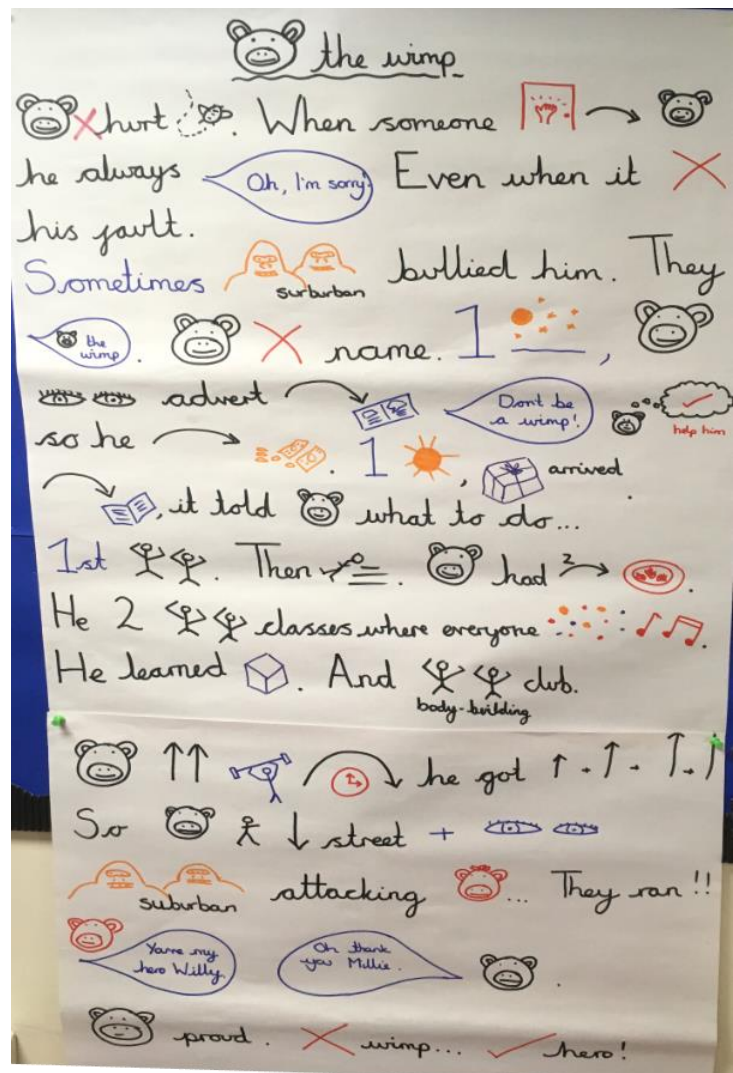 the wimp
hurt . When someone
he always Oh, I'm sorry! Even when it
his fault.
Sometimes surburban bullied him. They
the wimp . name. 1 ,
advert Don't be a wimp! help him
so he . 1 , arrived .
, it told what to do...
1st . Then . had 2 .
He 2 classes where everyone .
He learned . And body-building club.
he got
So street +
suburban attacking ... They ran!!
You're my hero Willy. Oh thank you Millie. .
proud. wimp... hero!